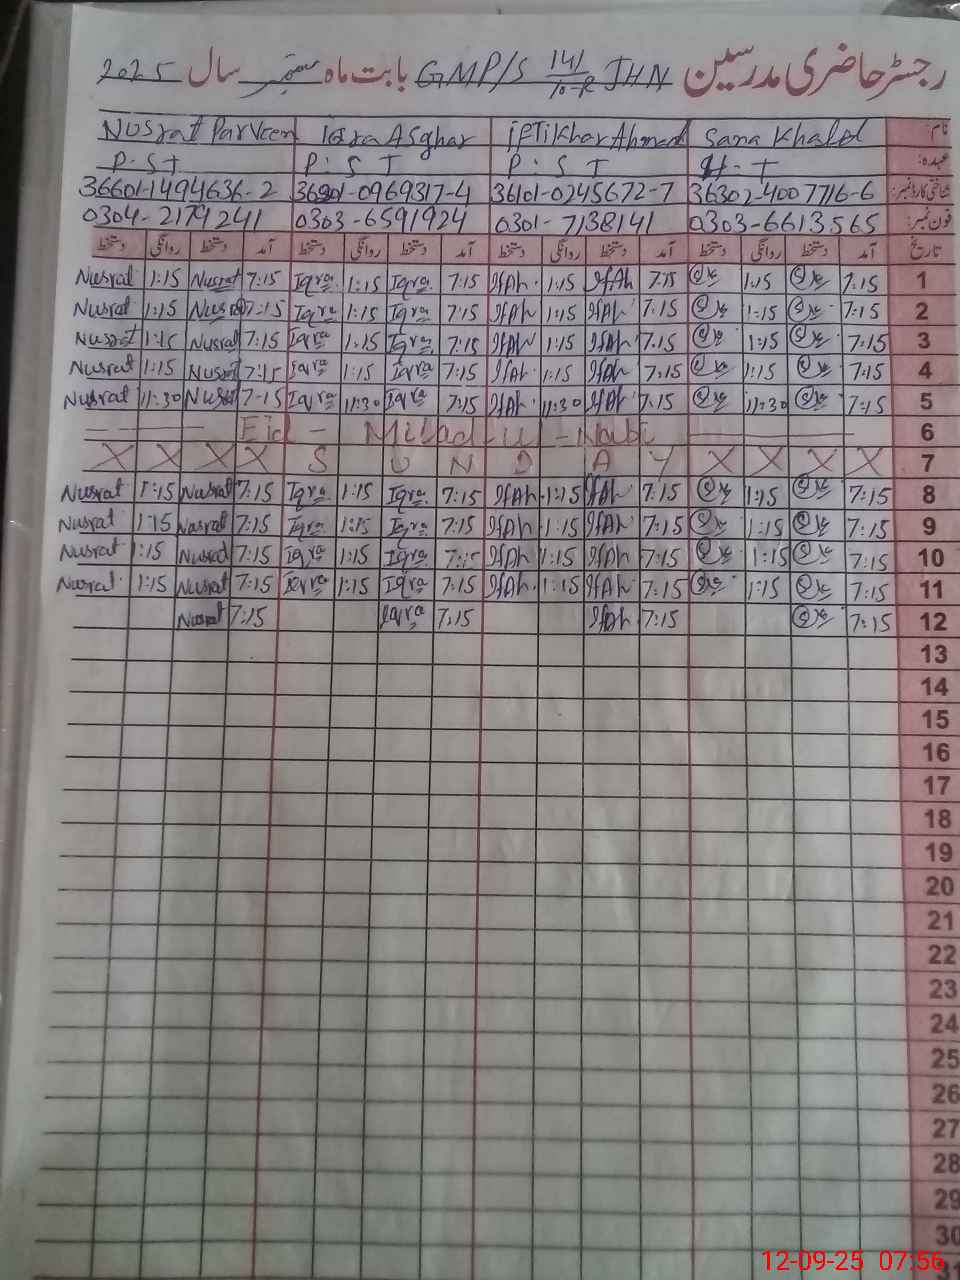 رجسٹر حاضری مدرسین GMP/S 141/10-R JHN بابت ماہ ستمبر سال 2025
نام: Sana Khalid Iftikhar Ahmad Iqra Asghar Nusrat Parveen
عہدہ: H.T P.S T P.S T P.S T
شناختی کارڈ نمبر: 36302-4007716-6 36101-0245672-7 -0969317-4 36601-1494636-2
فون نمبر: 0303-6613565 0301-7138141 0303-6591924 0304-2179241
تاریخ آمد دستخط روانگی دستخط آمد دستخط روانگی دستخط آمد دستخط روانگی دستخط آمد دستخط روانگی دستخط
1 7:15 1:15 7:15 IfAh 1:15 IfAh 7:15 Iqra 1:15 Iqra 7:15 Nusrat 1:15 Nusrat
2 7:15 1:15 7:15 IfAh 1:15 IfAh 7:15 Iqra 1:15 Iqra 7:15 Nusrat 1:15 Nusrat
3 7:15 1:15 7:15 IfAh 1:15 IfAh 7:15 Iqra 1:15 Iqra 7:15 Nusrat 1:15 Nusrat
4 7:15 1:15 7:15 IfAh 1:15 IfAh 7:15 Iqra 1:15 Iqra 7:15 Nusrat 1:15 Nusrat
5 7:15 11:30 7:15 IfAh 11:30 IfAh 7:15 Iqra 11:30 Iqra 7:15 Nusrat 11:30 Nusrat
6 Eid - Milad-ul-Nabi
7 X X X X S U N D A Y X X X X
8 7:15 1:15 7:15 IfAh 1:15 IfAh 7:15 Iqra 1:15 Iqra 7:15 Nusrat 1:15 Nusrat
9 7:15 1:15 7:15 IfAh 1:15 IfAh 7:15 Iqra 1:15 Iqra 7:15 Nusrat 1:15 Nusrat
10 7:15 1:15 7:15 IfAh 1:15 IfAh 7:15 Iqra 1:15 Iqra 7:15 Nusrat 1:15 Nusrat
11 7:15 1:15 7:15 IfAh 1:15 IfAh 7:15 Iqra 1:15 Iqra 7:15 Nusrat 1:15 Nusrat
12 7:15 7:15 IfAh 7:15 Iqra 7:15 Nusrat
13
14
15
16
17
18
19
20
21
22
23
24
25
26
27
28
29
30
31
12-09-25 07:56